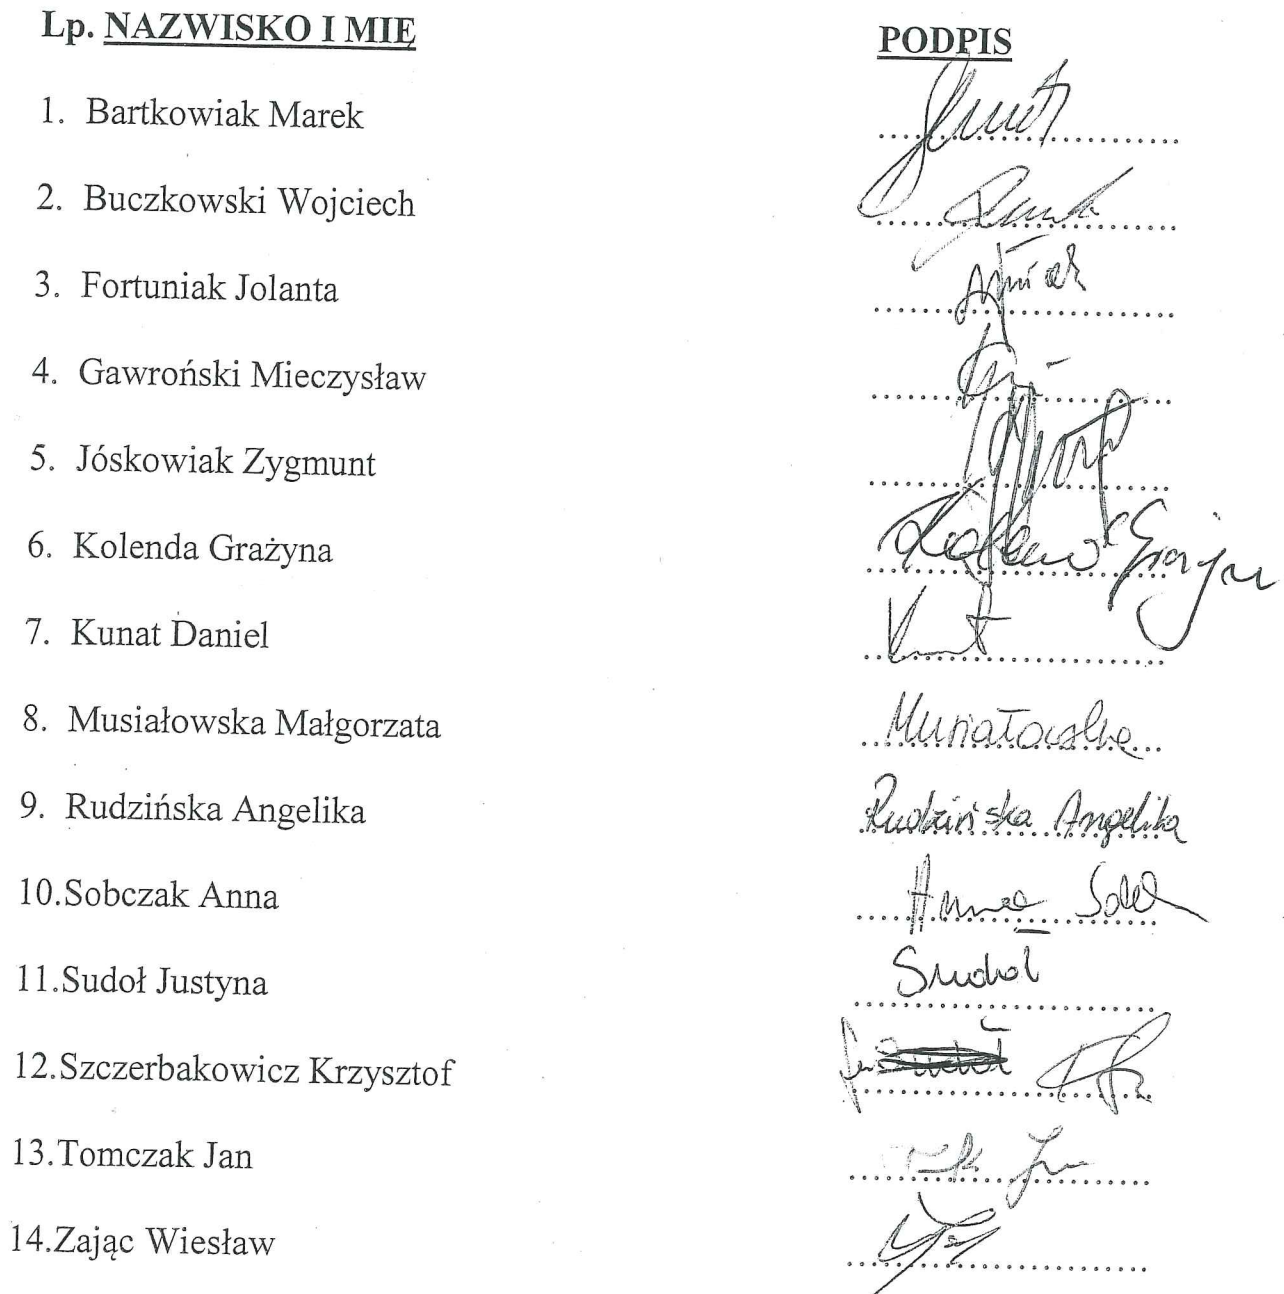 Lp. NAZWISKO I MIĘ PODPIS
1. Bartkowiak Marek
2. Buczkowski Wojciech
3. Fortuniak Jolanta
4. Gawroński Mieczysław
5. Jóskowiak Zygmunt
6. Kolenda Grażyna
7. Kunat Daniel
8. Musiałowska Małgorzata Musiałowska
9. Rudzińska Angelika Rudzińska Angelika
10.Sobczak Anna Anna
11.Sudoł Justyna Sudoł
12.Szczerbakowicz Krzysztof
13.Tomczak Jan
14.Zając Wiesław